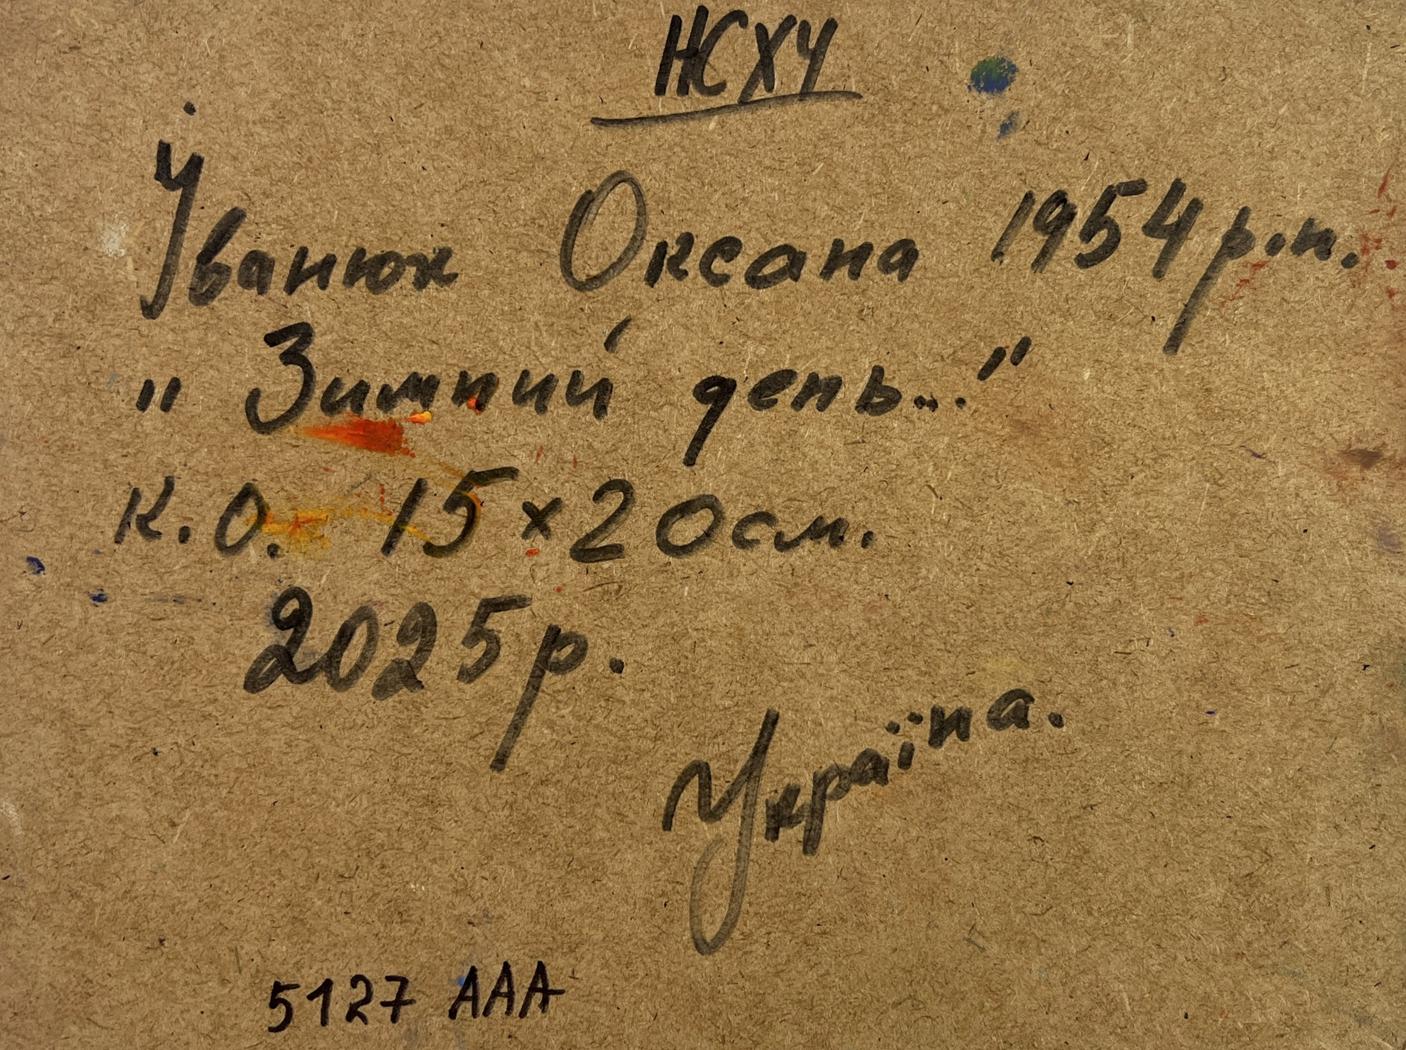 НСХУ
Іванюк Оксана 1954 р.н.
"Зимний день..."
к.о. 15×20см.
2025р.
Україна.
5127 AAA